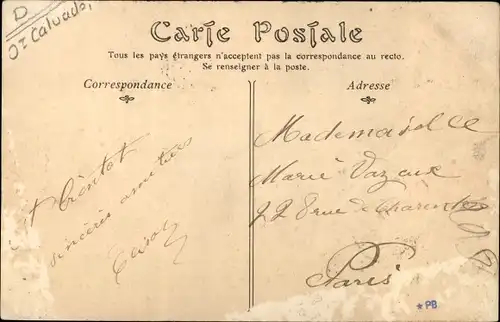 D
Dt Calvados
Carte Postale
Tous les pays étrangers n'acceptent pas la correspondance au recto.
Se renseigner à la poste.
Correspondance
A bientot
sincères amitiés
Adresse
Mademoiselle
Marie Vazeux
22 Rue de Charenton
Paris
*PB